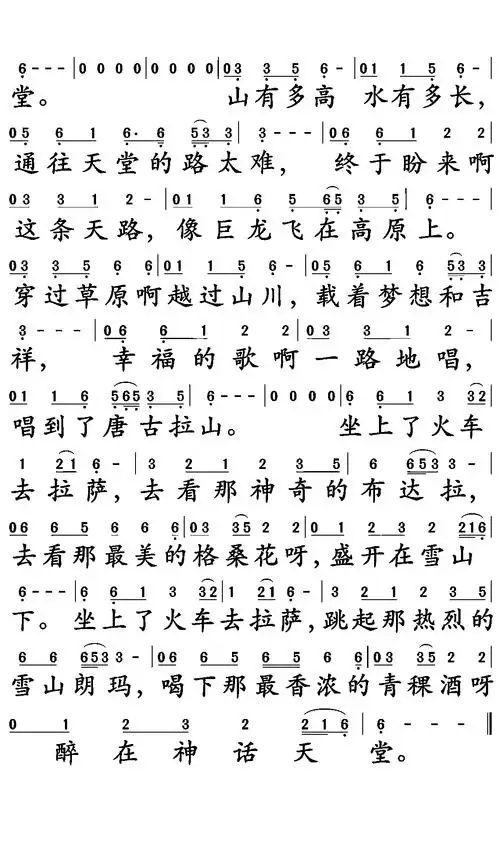 6 - - - | 0 0 0 0 | 0 0 0 0 | 03 3 5 6 - | 01 1 5 6 - |
堂。 山有多高 水有多长，
05 6 1 6· 6 53 3 | 3 - - - | 06 6 1 2 2 |
通往天堂的路太难， 终于盼来啊
03 3 1 2 - | 01 1 6 5 65 3 5 | 6 - - - |
这条天路，像巨龙飞在高原上。
03 3 5 6 6 - | 01 1 5 6 - | 05 6 1 6 53 3 |
穿过草原啊越过山川，载着梦想和吉
3 - - - | 06 6 1 2 2 | 03 3 1 2 - |
祥， 幸福的歌啊一路地唱，
01 1 6 565 3 5 | 6 - - - | 0 0 0 0 | 06 6 1 3 32 |
唱到了唐古拉山。 坐上了火车
1 21 6 - | 3 2 1 2 | 3 5 5 - | 6 6 653 3 |
去拉萨，去看那神奇的布达拉，
06 6 5 6 6 6 | 03 35 2 - | 01 2 3 2 216 |
去看那最美的格桑花呀，盛开在雪山
6 - - - | 06 6 1 3 32 | 1 21 6 - | 3 2 1 2 3 5 |
下。坐上了火车去拉萨，跳起那热烈的
6 6 653 3 - | 06 6 5 6 6 6 | 03 35 2 2 |
雪山朗玛，喝下那最香浓的青稞酒呀
0 1 2 3 2 216 | 6 - - - ‖
醉在神话天堂。